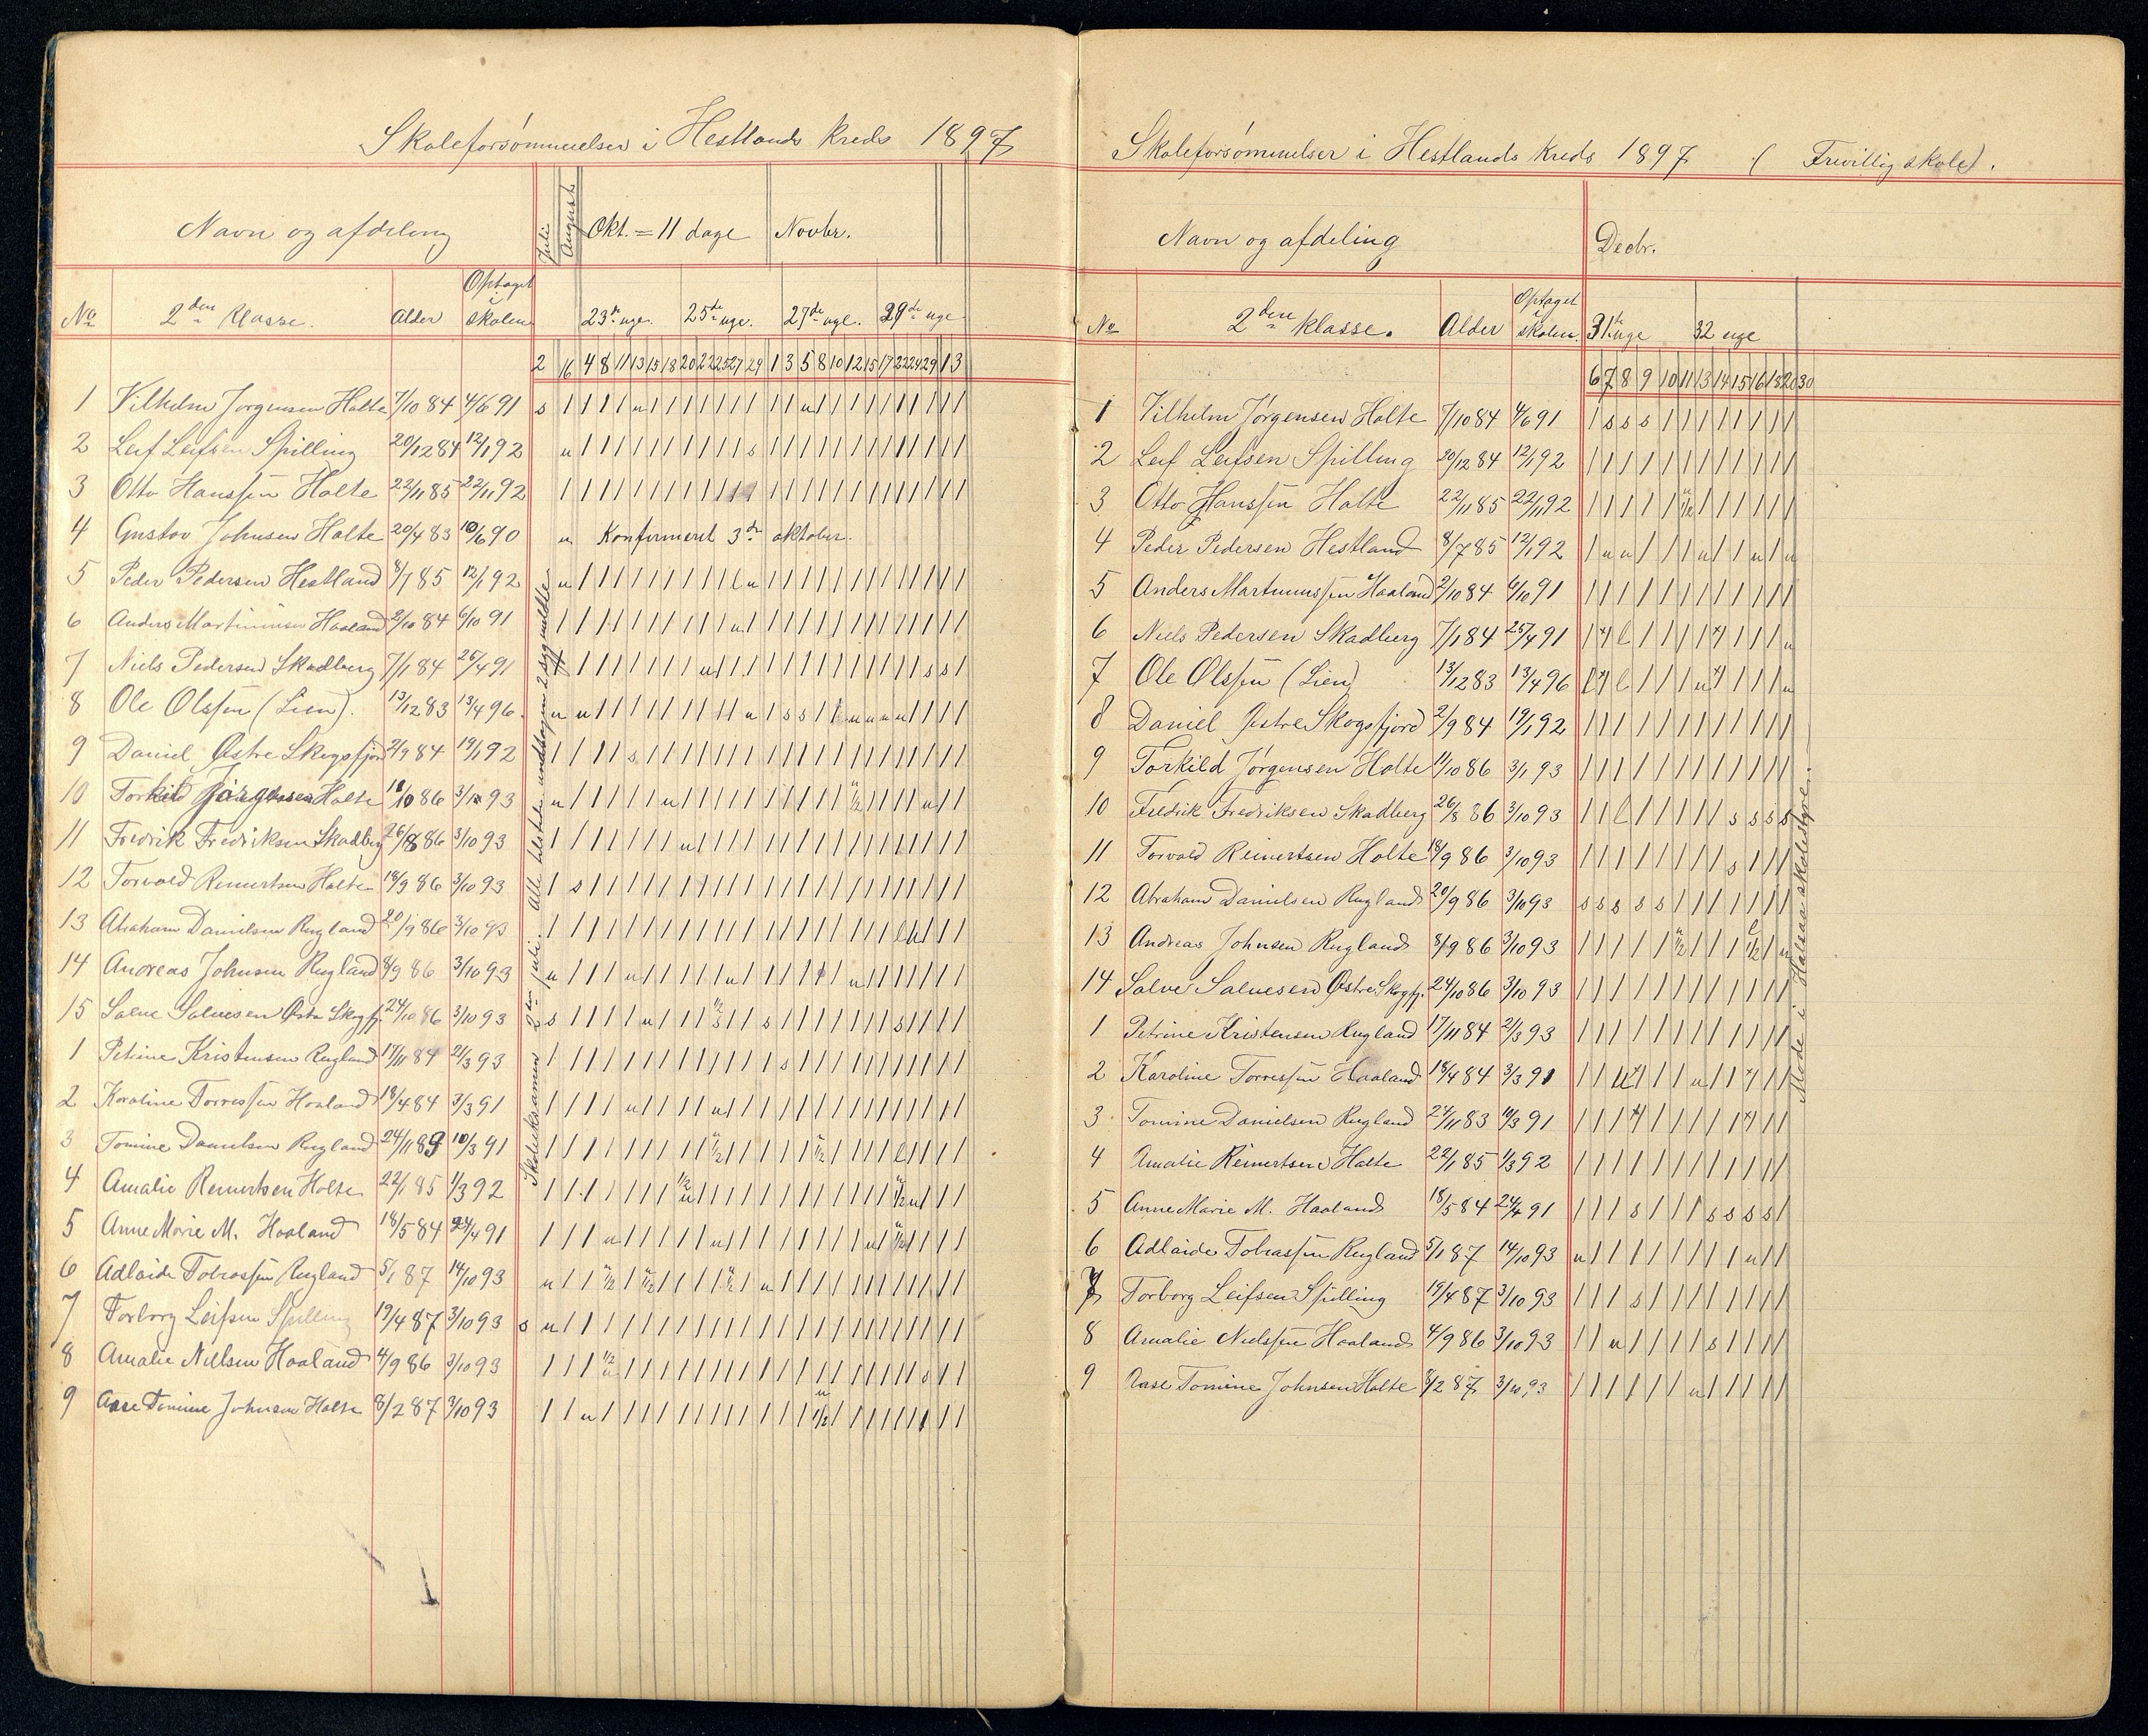 Skoleforsømmelser i Hestlands kreds 1897
Navn og afdeling Juli August Okt. = 11 dage Novbr.
No 2den klasse. Alder Optaget i skolen 23de uge. 25de uge. 27de uge. 29de uge
2 16 4 8 11 13 15 18 20 22 25 27 29 1 3 5 8 10 12 15 17 22 24 29 1 3
1 Vilhelm Jørgensen Holte 7/10 84 4/6 91
2 Leif Leifsen Spilling 20/12 84 12/1 92
3 Otto Hanssen Holte 22/11 85 22/11 92
4 Gustav Johnsen Holte 20/4 83 10/6 90 u Konfirmeret 3de oktober.
5 Peder Pedersen Hestland 8/7 85 12/1 92
6 Anders Martinussen Haaland 2/10 84 6/10 91
7 Niels Pedersen Skadberg 7/1 84 25/4 91
8 Ole Olssen (Lien). 13/12 83 13/4 96.
9 Daniel Østre Skogsfjord 2/9 84 19/1 92
10 Torkild Jørgensen Holte 11/10 86 3/10 93
11 Fredrik Fredriksen Skadberg 26/8 86 3/10 93
12 Torvald Reinertsen Holte 18/9 86 3/10 93
13 Abraham Danielsen Rugland 20/9 86 3/10 93
14 Andreas Johnsen Rugland 8/9 86 3/10 93
15 Salve Salvesen Østre Skogfj. 24/10 86 3/10 93
1 Petrine Kristensen Rugland 17/11 84 21/3 93
2 Karoline Torressen Haaland 18/4 84 3/3 91
3 Tomine Danielsen Rugland 24/11 83 10/3 91
4 Amalie Reinertsen Holte 22/1 85 1/3 92
5 Anne Marie M. Haaland 18/5 84 24/4 91
6 Adlaide Tobiassen Rugland 5/1 87 14/10 93
7 Torborg Leifsen Spilling 19/4 87 3/10 93
8 Amalie Nielsen Haaland 4/9 86 3/10 93
9 Aase Tomine Johnsen Holte 8/2 87 3/10 93
Skoleeksamen 2den juli. Alle tilstede undtagen 2 sygmeldte.
Skoleforsømmelser i Hestlands kreds 1897 (Frivillig skole).
Navn og afdeling Decbr.
No 2den klasse. Alder Optaget i skolen. 31te uge 32 uge
6 7 8 9 10 11 13 14 15 16 18 20 30
1 Vilhelm Jørgensen Holte 7/10 84 4/6 91
2 Leif Leifsen Spilling 20/12 84 12/1 92
3 Otto Hanssen Holte 22/11 85 22/11 92
4 Peder Pedersen Hestland 8/7 85 12/1 92
5 Anders Martinussen Haaland 2/10 84 6/10 91
6 Niels Pedersen Skadberg 7/1 84 25/4 91
7 Ole Olssen (Lien) 13/12 83 13/4 96
8 Daniel Østre Skogsfjord 2/9 84 19/1 92
9 Torkild Jørgensen Holte 11/10 86 3/1 93
10 Fredrik Fredriksen Skadberg 26/8 86 3/10 93
11 Torvald Reinertsen Holte 18/9 86 3/10 93
12 Abraham Danielsen Rugland 20/9 86 3/10 93
13 Andreas Johnsen Rugland 8/9 86 3/10 93
14 Salve Salvesen Østre Skogfj. 24/10 86 3/10 93
1 Petrine Kristensen Rugland 17/11 84 21/3 93
2 Karoline Torressen Haaland 18/4 84 3/3 91
3 Tomine Danielsen Rugland 24/11 83 10/3 91
4 Amalie Reinertsen Holte 22/1 85 1/3 92
5 Anne Marie M. Haaland 18/5 84 24/4 91
6 Adlaide Tobiassen Rugland 5/1 87 14/10 93
7 Torborg Leifsen Spilling 19/4 87 3/10 93
8 Amalie Nielssen Haaland 4/9 86 3/10 93
9 Aase Tomine Johnsen Holte 8/2 87 3/10 93
Møde i Halsaa skolestyre.